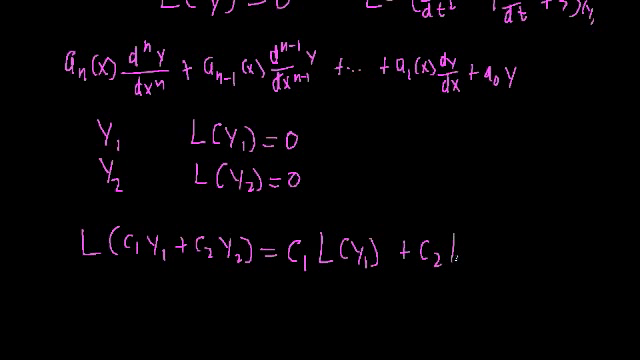 L(y)=0 L=(d/dt² d/dt +3)y,
aₙ(x) dⁿy/dxⁿ + aₙ₋₁(x) dⁿ⁻¹y/dxⁿ⁻¹ + ... + a₁(x) dy/dx + a₀ y
Y₁ L(Y₁)=0
Y₂ L(Y₂)=0
L(C₁Y₁ + C₂Y₂) = C₁ L(Y₁) + C₂ L